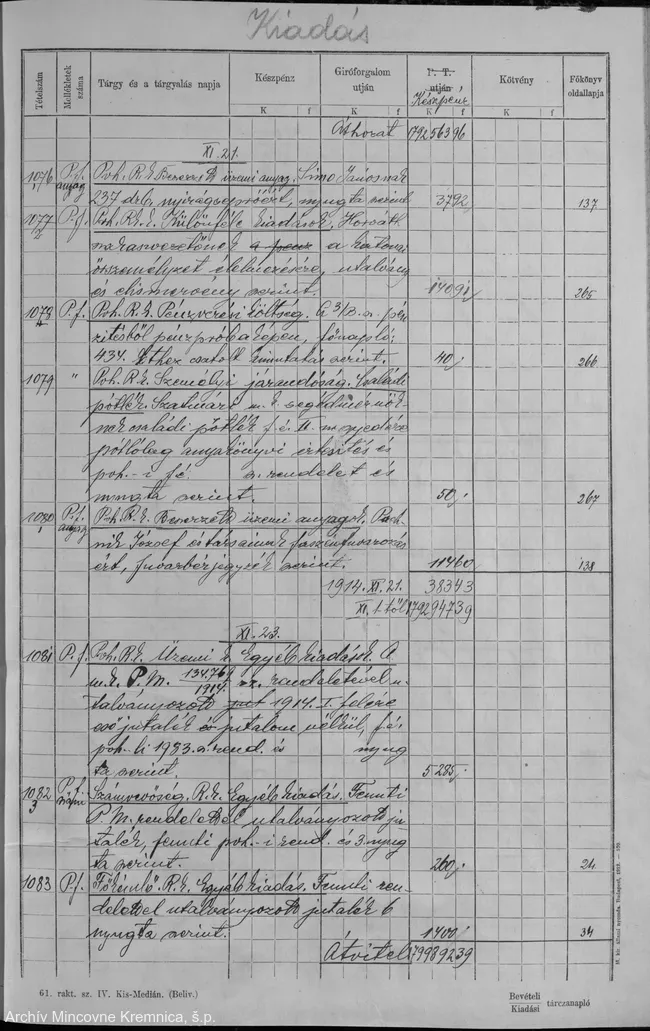 Kiadás
Tételszám
Mellékletek száma
Tárgy és a tárgyalás napja
Készpénz
K f
Giróforgalom utján
K f
P. T. utján
Készpénz
K f
Kötvény
K f
Főkönyv oldallapja
Áthozat 179256396
XI. 21.
1076 P.f. anyag Poh. R.k. Beszerzett üzemi anyag. Simo Jánosnak
237 drb. nyirágseprőért, nyugta szerint 3792 137
1077 P.f. Poh. R.k. Különféle kiadások, Horváth
szakaszvezetőnek a pénz a katonai
őrszemélyzet élelmezésére, utalvány
és elismervény szerint. 14091 265
1078 P.f. Poh. R.k. Pénzverési költség. A 3/B. sz. pén-
zitésből pénzpróbaképen, főnapló:
434. tthez csatolt kimutatás szerint. 40 266
1079 " Poh. R.k. Személyi járandóság. Családi
pótlék. Szatmári m. k. segédmérnök-
nek családi pótlék f. é. II. negyedére
pótlólag anyakönyvi értesités és
poh.-i fé. sz. rendelet és
nyugta szerint. 50 267
1080 P.f. anyag Poh. R.k. Beszerzett üzemi anyagok.
nik József és társainak faszénfuvarozás
ért, fuvarbérjegyzék szerint. 11460 138
1914. XI. 21. 38343
XI. 1. től 179294739
XI. 23.
1081 P.f. Poh. R.k. Üzemi k. Egyéb kiadások. A
m. k. P. M. 134.769/1914. sz. rendeletével u-
talványozott jut 1914. I. felére
eső jutalék és jutalom nélkül, fé.
poh.-li 1953. sz. rend. és nyug
ta szerint. 5285
1082 3 P.f. Számvevőség. R.k. Egyéb kiadás. Fennti
P. M. rendelettel utalványozott ju
talék, fennti poh.-i rend. és 3. nyug
ta szerint. 260 24
1083 P.f. Főkémlő. R.k. Egyéb kiadás. Fennti ren-
delettel utalványozott jutalék 6
nyugta szerint. 1400 34
Átvitel 179989239
61. rakt. sz. IV. Kis-Medián. (Beliv.)
Bevételi
Kiadási
tárczanapló
Archív Mincovne Kremnica, š.p.